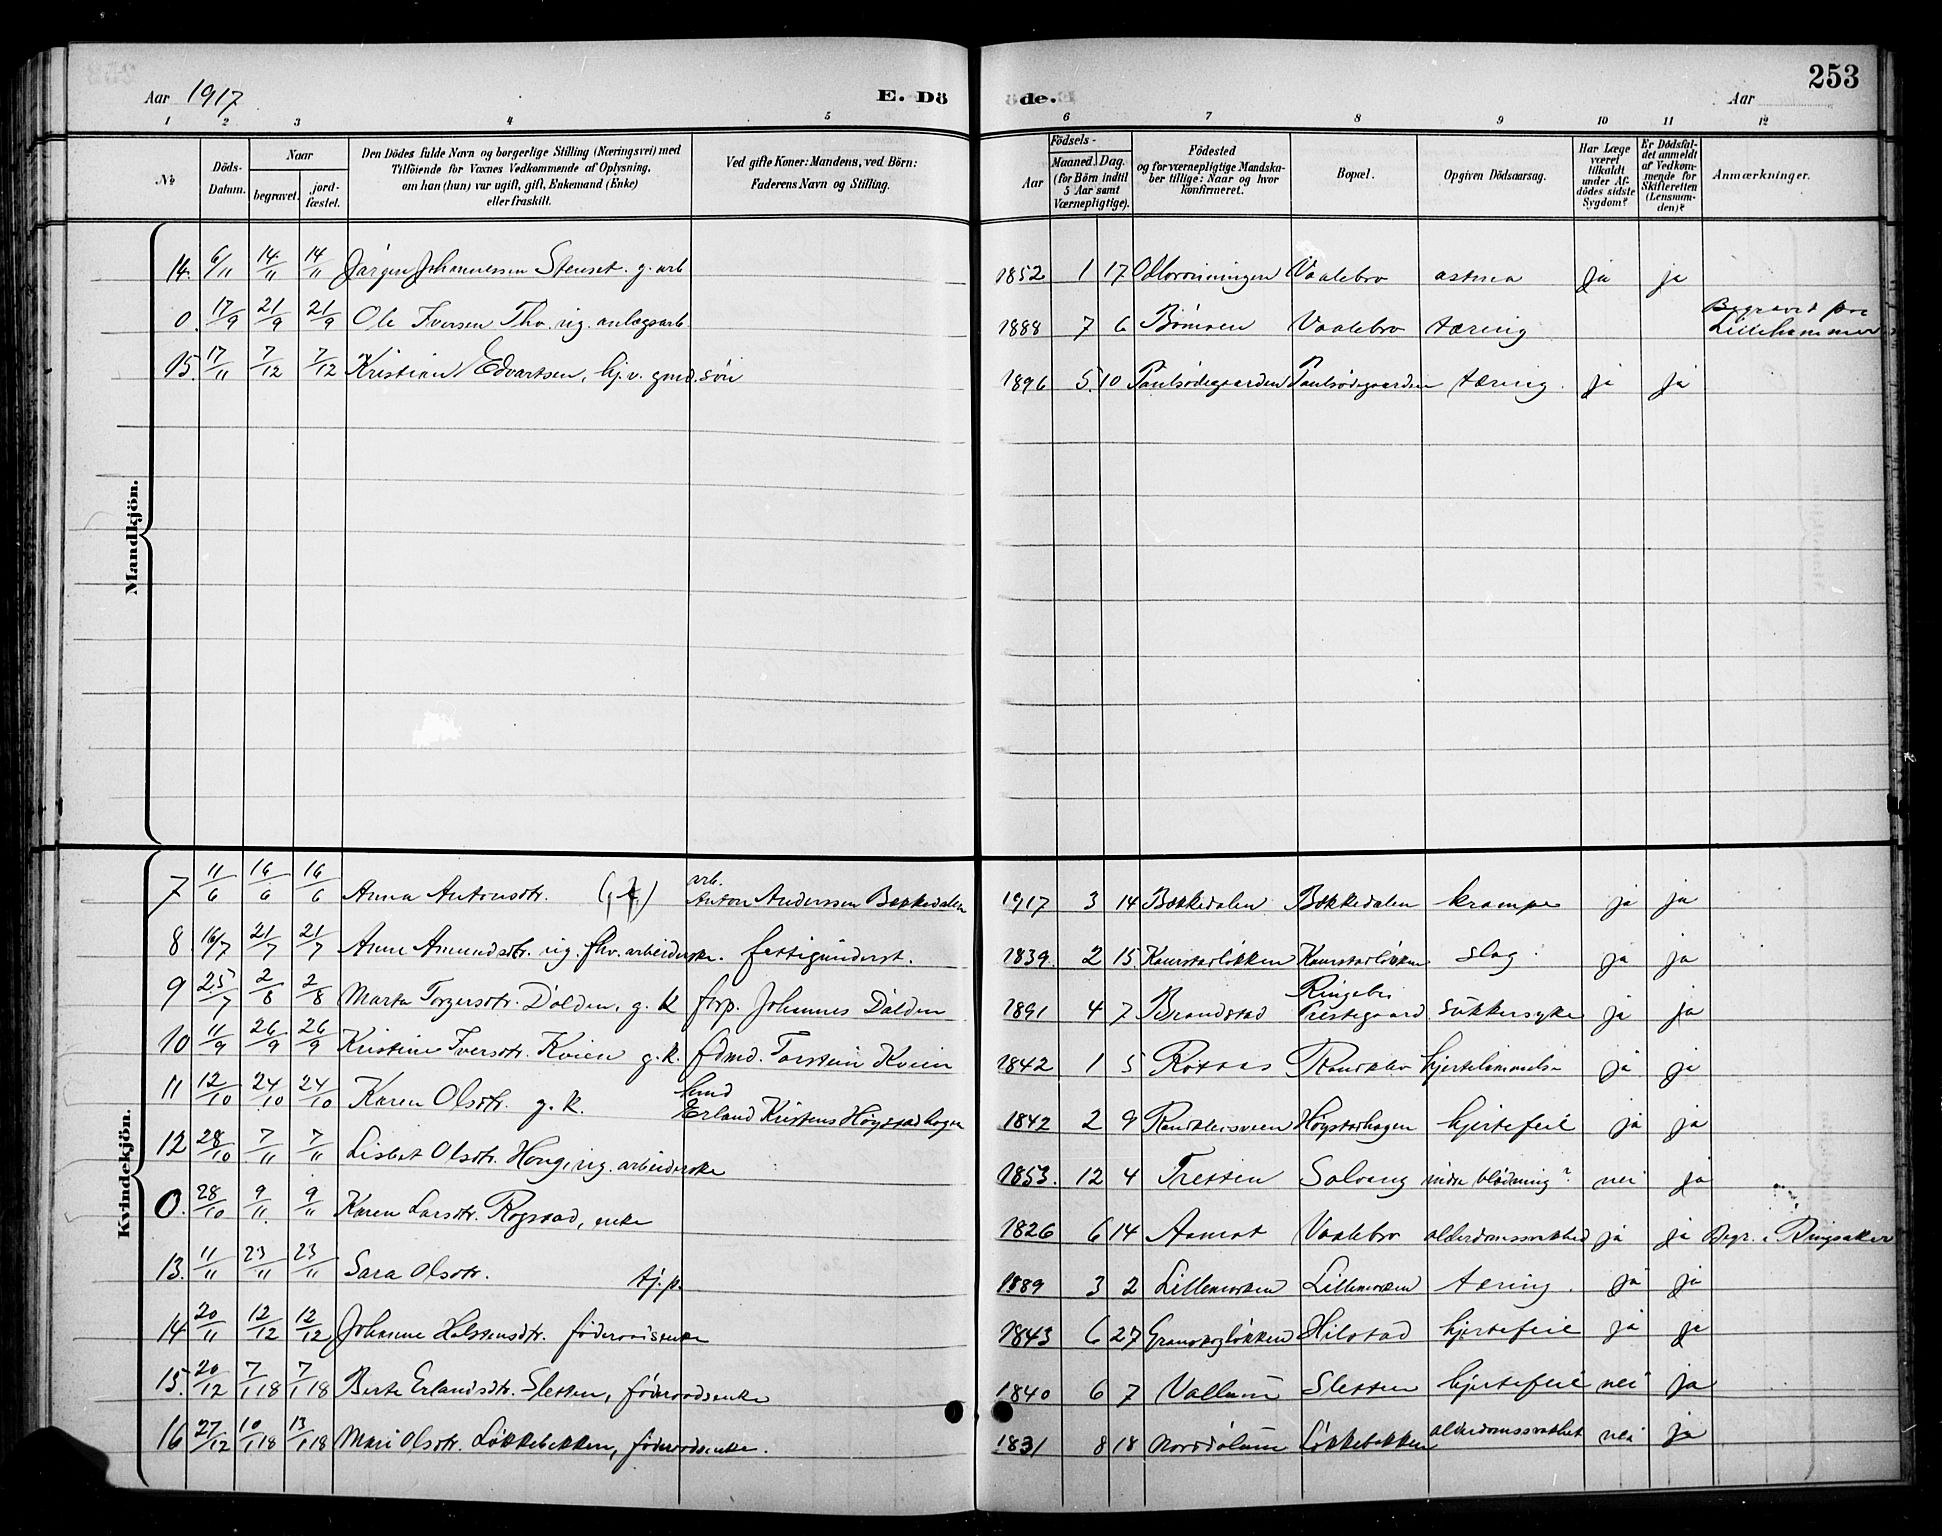 253
Aar 1917 E. Dö de. Aar
1 2 3 4 5 6 7 8 9 10 11 12
№ Döds-Datum. Naar begravet. jordfæstet. Den Dödes fulde Navn og borgerlige Stilling (Næringsvei) med Tilföiende for Voxnes Vedkommende af Oplysning, om han (hun) var ugift, gift, Enkemand (Enke) eller fraskilt. Ved gifte Koner: Mandens, ved Börn: Faderens Navn og Stilling. Födsels- Aar Maaned. Dag. (for Börn indtil 5 Aar samt Værnepligtige). Födested og for værnepligtige Mandskaber tillige: Naar og hvor konfirmeret. Bopæl. Opgiven Dödsaarsag. Har Læge været tilkaldt under Afdödes sidste Sygdom? Er Dödsfaldet anmeldt af Vedkommende for Skifteretten (Lensmanden)? Anmærkninger.
Mandkjön.
14. 6/11 14/11 14/11 Jørgen Johannessen Stenset. g. arb 1852 1 17 Vaalebro astma ja ja
0. 17/9 21/9 21/9 Ole Iversen Tho. ug. anlægsarb. 1888 7 6 Vaalebro tæring Begravet paa Lillehammer
15. 17/11 7/12 7/12 Kristian Edvartsen, hj.v. gmd. søn 1896 5 10 Paulsødegaarden Paulsødegaarden tæring. ja ja
Kvindekjön.
7 11/6 16/6 16/6 Anna Antonsdtr. arb. Anton Anderssen Bækkedalen 1917 3 14 Bækkedalen Bækkedalen krampe ja ja
8 16/7 21/7 21/7 Anne Amundsdtr. ug. fhv. arbeiderske. fattigunderst. 1839. 2 15 Kaurstadløkken Kaurstadløkken slag. ja ja
9 25/7 2/8 2/8 Marta Torgersdtr. Dalden, g. k forp. Johannes Dalden 1891 4 7 Brandstad Ringebu Prestegaard sukkersyke ja ja
10 11/9 26/9 26/9 Kristine Iversdtr. Kvien g. k. fdmd. Torstein Kvien 1842 1 5 Randklev hjertelammelse ja ja
11 12/10 24/10 24/10 Karen Olsdtr. g. k. Erland Kristens Høystadhagen 1842 2 9 Randkleivsveen Høystadhagen hjertefeil ja ja
12 28/10 7/11 7/11 Lisbet Olsdtr. Haug, ug. arbeiderske 1853. 12 4 Tretten Solvang indre blødning? nei ja
0. 28/10 9/11 9/11 Karen Larsdtr. Rogstad, enke 1826 6 14 Aamot Vaalebro alderdomssvakhed ja ja Begr. i Ringsaker
13. 11/11 23/11 23/11 Sara Olsdtr. tj. p. 1889 3 2 Lillemoen Lillemoen tæring. ja ja
14 20/11 12/12 12/12 Johanne Halstensdtr. føderaadsenke 1843 6 27 Granskogløkken Hilstad hjertefeil ja ja
15. 20/12 7/1 18 7/1 18 Berte Erlandsdtr. Sletten, føderaadsenke 1840 6 7 Vallum Sletten hjertefeil nei ja
16 27/12 10/1 18 13/1 18 Mari Olsdtr. Løkkebækken, føderaadsenke. 1831 8 18 Norddølum Løkkebækken alderdomssvakhet nei ja